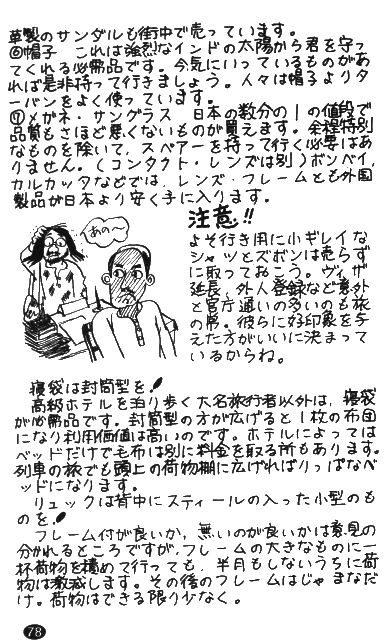 革製のサンダルも街中で売っています。
⑥帽子　これは強烈なインドの太陽から君を守っ
てくれる必需品です。今気にいっているものがあ
れば是非持って行きましょう。人々は帽子よりタ
ーバンをよく使っています。
⑦メガネ・サングラス　日本の数分の1の値段で
品質もさほど悪くないものが買えます。余程特別
なものを除いて、スペアーを持って行く必要はあ
りません。(コンタクト・レンズは別)ボンベイ、
カルカッタなどでは、レンズ・フレームとも外国
製品が日本より安く手に入ります。
注意!!
あの〜
よそ行き用に小ギレイな
シャツとズボンは売らず
に取っておこう。ヴィザ
延長、外人登録など意外
と官庁通いの多いのも旅
の常。彼らに好印象を与
えた方がいいに決まって
いるからね。
寝袋は封筒型を!
高級ホテルを泊り歩く大名旅行者以外は、寝袋
が必需品です。封筒型の方が広げると1枚の布団
になり利用価値は高いのです。ホテルによっては
ベッドだけで毛布は別に料金を取る所もあります。
列車の旅でも頭上の荷物棚に広げればりっぱなベ
ッドになります。
リュックは背中にスティールの入った小型のも
のを!
フレーム付が良いか、無いのが良いかは意見の
分かれるところですが、フレームの大きなものに一
杯荷物を積めて行っても、半月もしないうちに荷
物は激減します。その後のフレームはじゃまなだ
け。荷物はできる限り少なく。
78